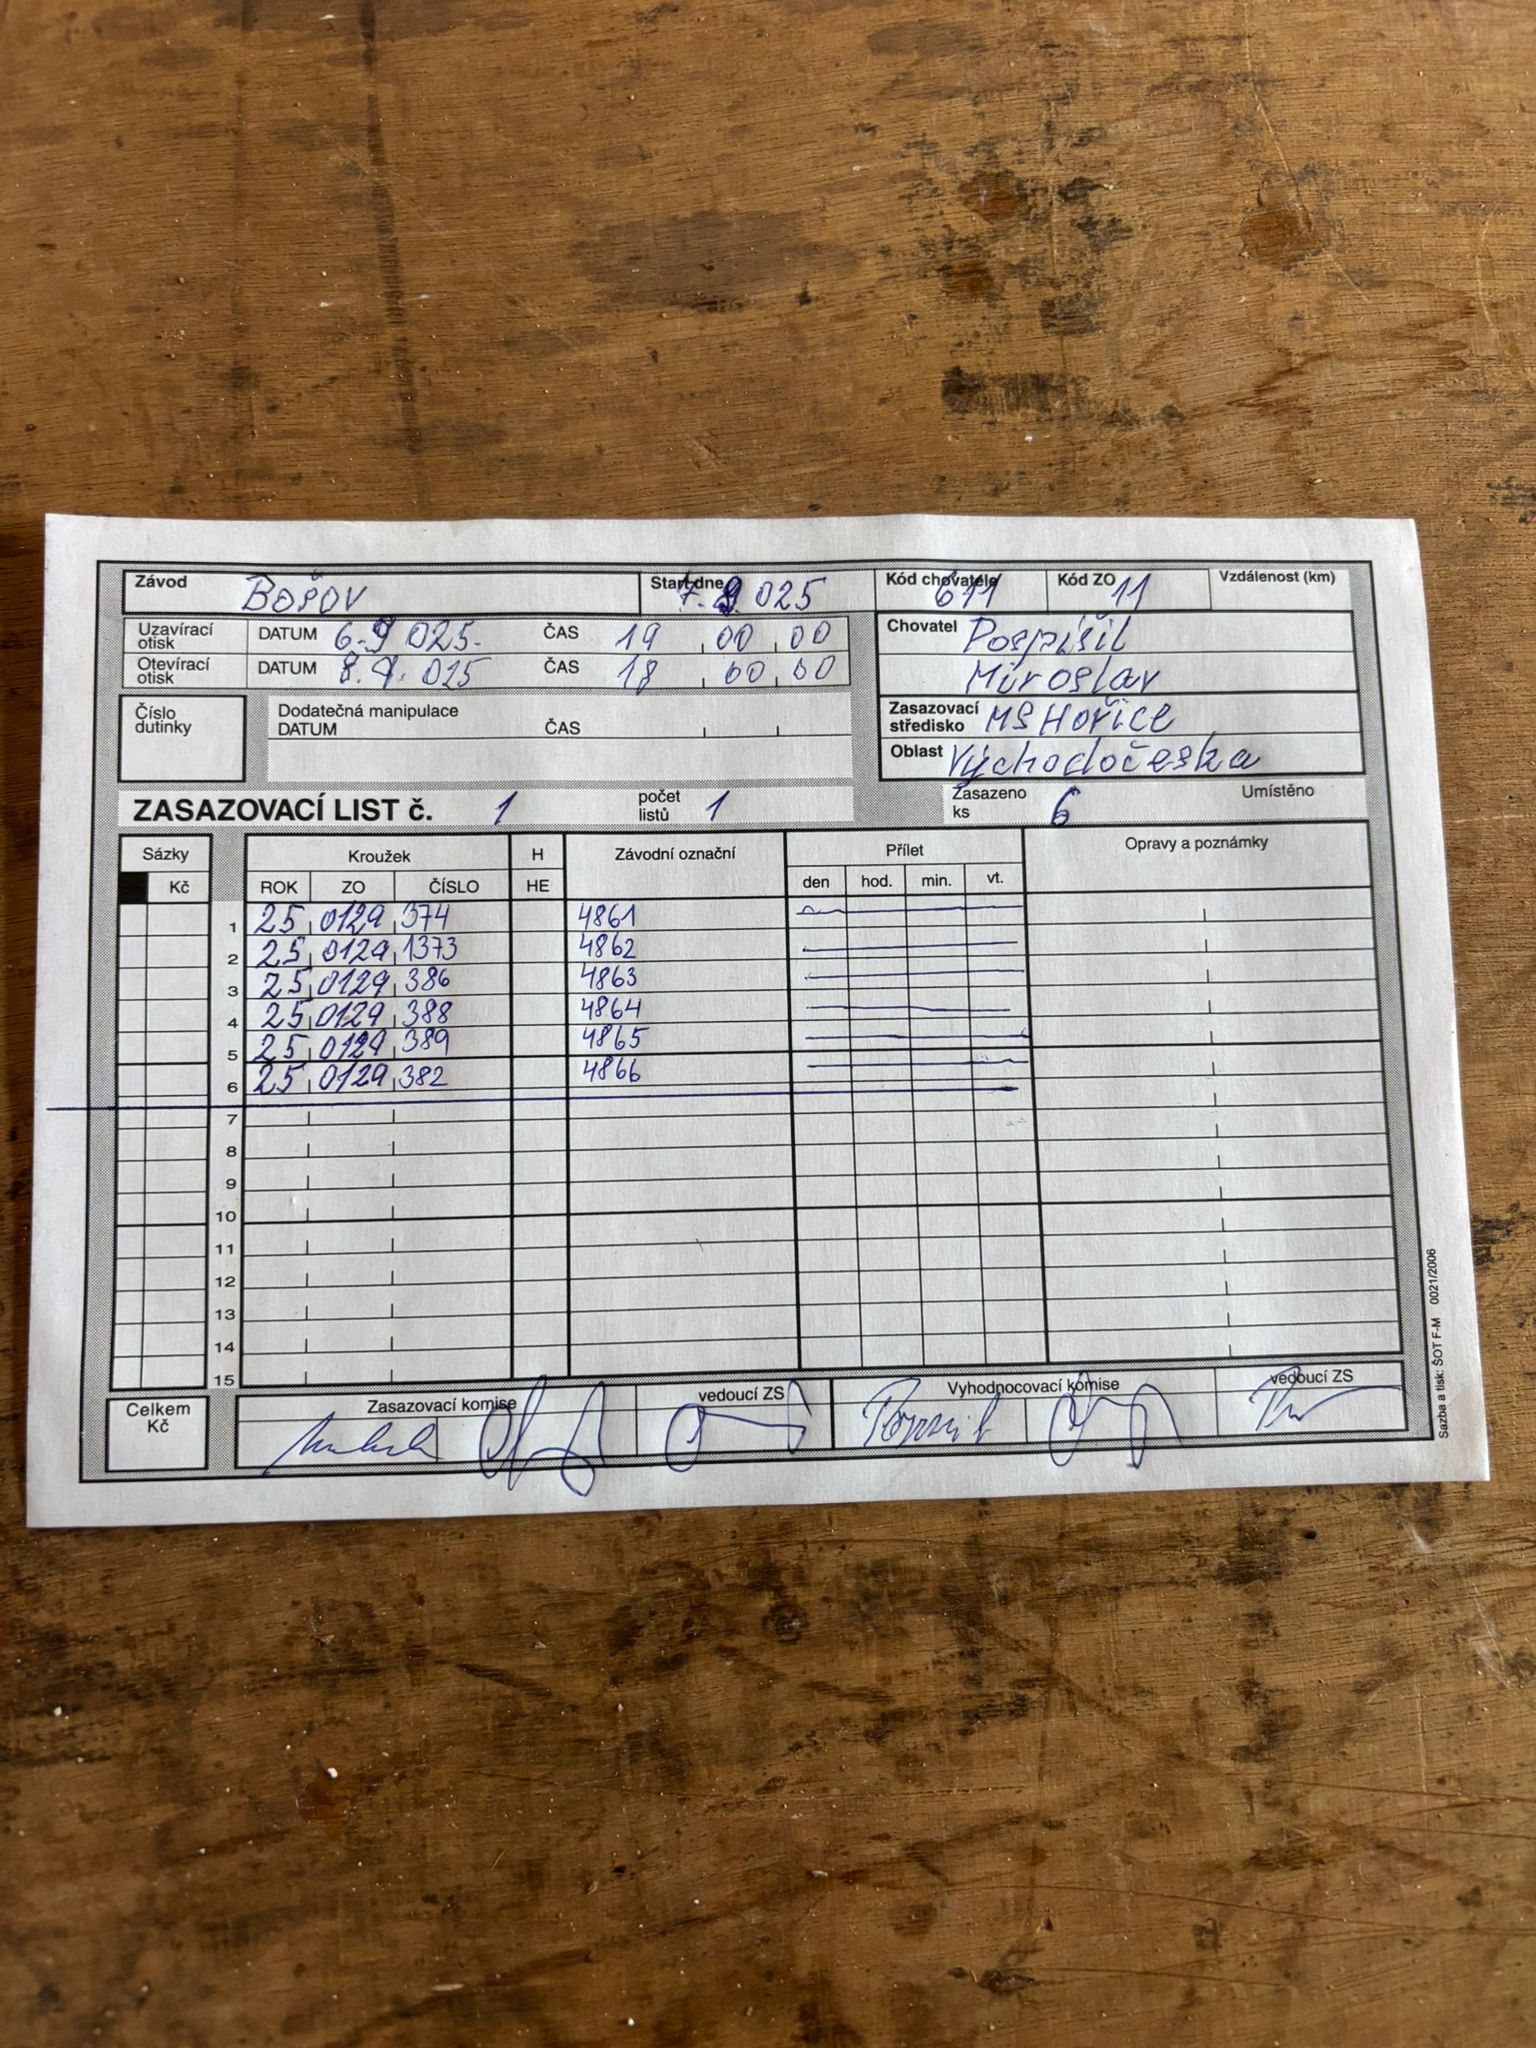 Závod Bošov Start dne 7. 9. 025 Kód chovatele 611 Kód ZO 11 Vzdálenost (km)
Uzavírací otisk DATUM 6.9 025. ČAS 19 00 00
Otevírací otisk DATUM 8.9. 025 ČAS 18 00 00
Chovatel Pospíšil
Miroslav
Číslo dutinky
Dodatečná manipulace
DATUM ČAS
Zasazovací středisko MS Hořice
Oblast Východočeska
ZASAZOVACÍ LIST č. 1 počet listů 1 Zasazeno ks 6 Umístěno
Sázky Kroužek H Závodní označní Přílet Opravy a poznámky
Kč ROK ZO ČÍSLO HE den hod. min. vt.
1 25 0129 374 4861
2 25 0129 1373 4862
3 25 0129 386 4863
4 25 0129 388 4864
5 25 0129 389 4865
6 25 0129 382 4866
7
8
9
10
11
12
13
14
15
Celkem Kč
Zasazovací komise vedoucí ZS Vyhodnocovací komise vedoucí ZS
Sazba a tisk: ŠOT F-M 0021/2006